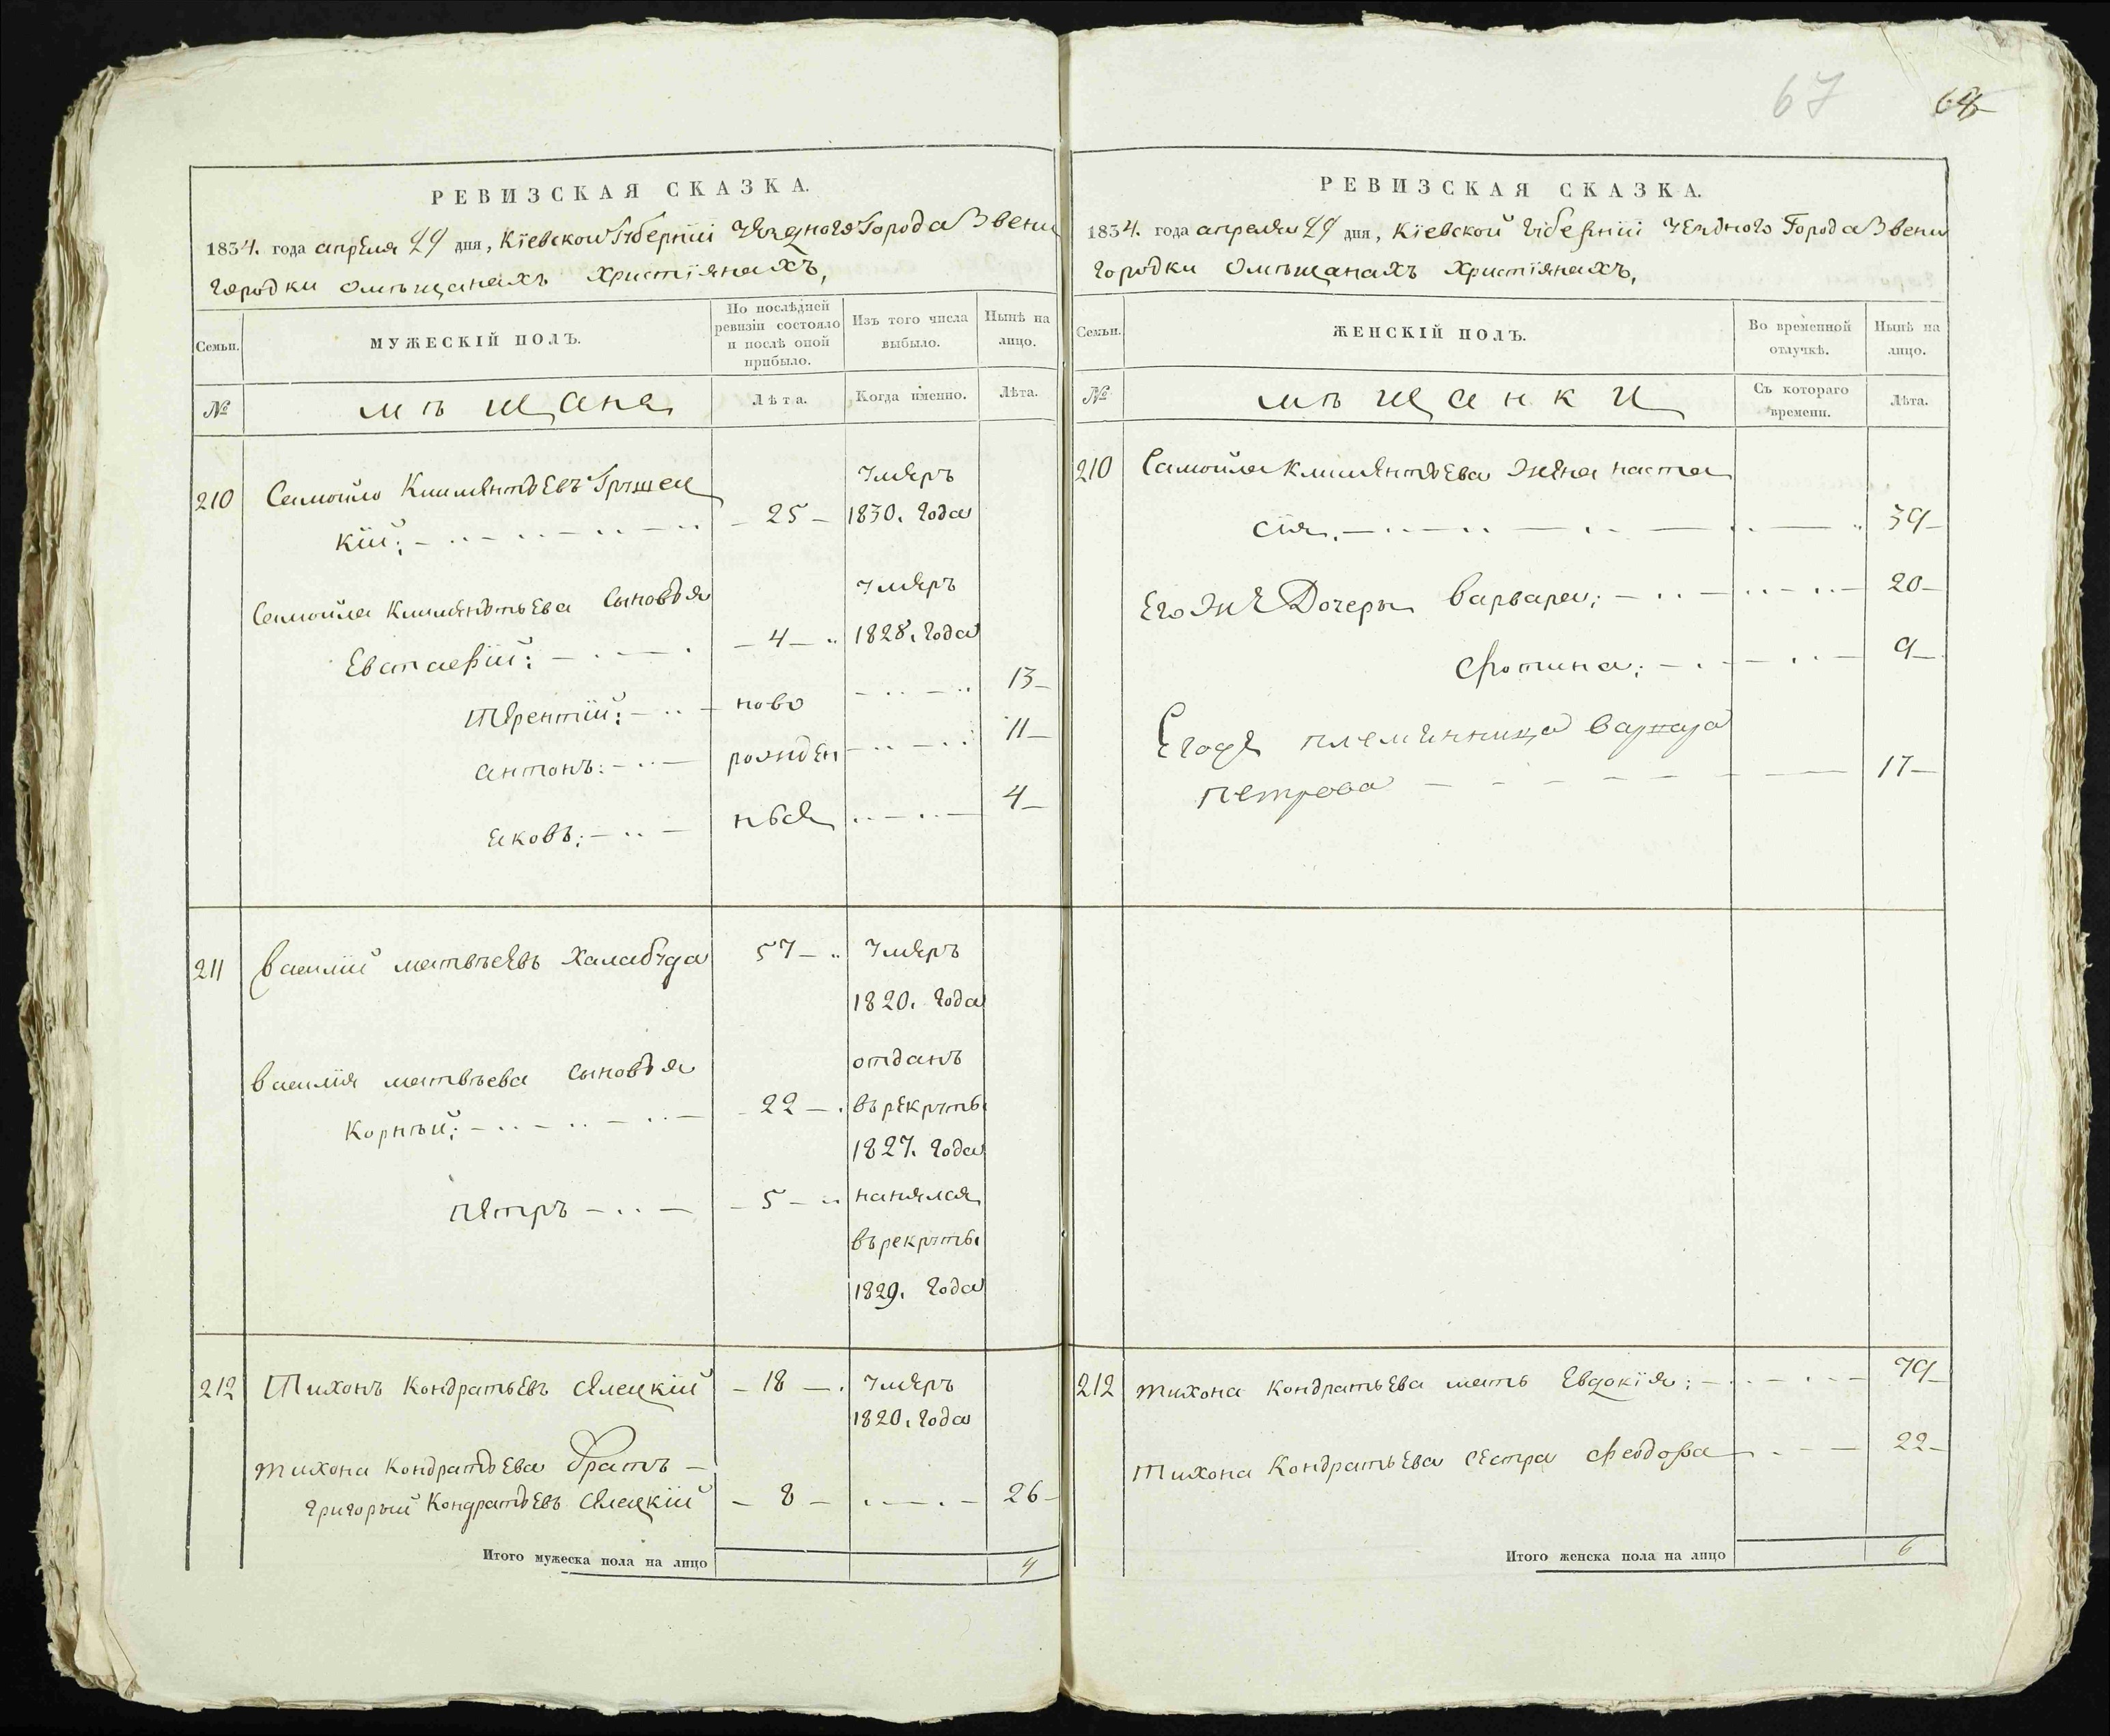 67
68
РЕВИЗСКАЯ СКАЗКА.
1834. года апреля 29 дня, Кіевской Губерніи Уезднаго Города Звени
городки Омѣщанахъ Христіянахъ,
Семьи.
МУЖЕСКІЙ ПОЛЪ.
По послѣдней ревизіи состояло и послѣ оной прибыло.
Изъ того числа выбыло.
Нынѣ на лицо.
№
мѣщана
Лѣта.
Когда именно.
Лѣта.
210
Самойло Климентьевъ Грушец
кій;
25
умеръ
1830. года
Самойла Климентьева Сыновья
Евстафій:
4
умеръ
1828. года
Терентій:
ново
13
Антонъ:
рожден
11
Яковъ;
ныя
4
211
Василій Матвѣевъ Халабуда
57
умеръ
1820. года
Василія Матвѣева Сыновья
Корнѣй;
22
отданъ
въ рекруты
1827. года
Петръ
5
нанялся
въ рекруты
1829. года
212
Тихонъ Кондратьевъ Слецкій
18
умеръ
1820. года
Тихона Кондратьева братъ
Григорый Кондратьевъ Слецкій
8
26
Итого мужеска пола на лицо
4
РЕВИЗСКАЯ СКАЗКА.
1834. года апреля 29 дня, Кіевской Губерніи Уезднаго Города Звени
городки Омѣщанахъ Христіянахъ,
Семьи.
ЖЕНСКІЙ ПОЛЪ.
Во временной отлучкѣ.
Нынѣ на лицо.
№
мѣщанки
Съ котораго времени.
Лѣта.
210
Самойла Климентьева Жена Наста
сія,
39
Его же Дочеры Варвара;
20
Фотина;
9
Его же племянница Варвара
Петрова
17
212
Тихона Кондратьева мать Евдокія;
79
Тихона Кондратьева Сестра Феодора
22
Итого женска пола на лицо
6